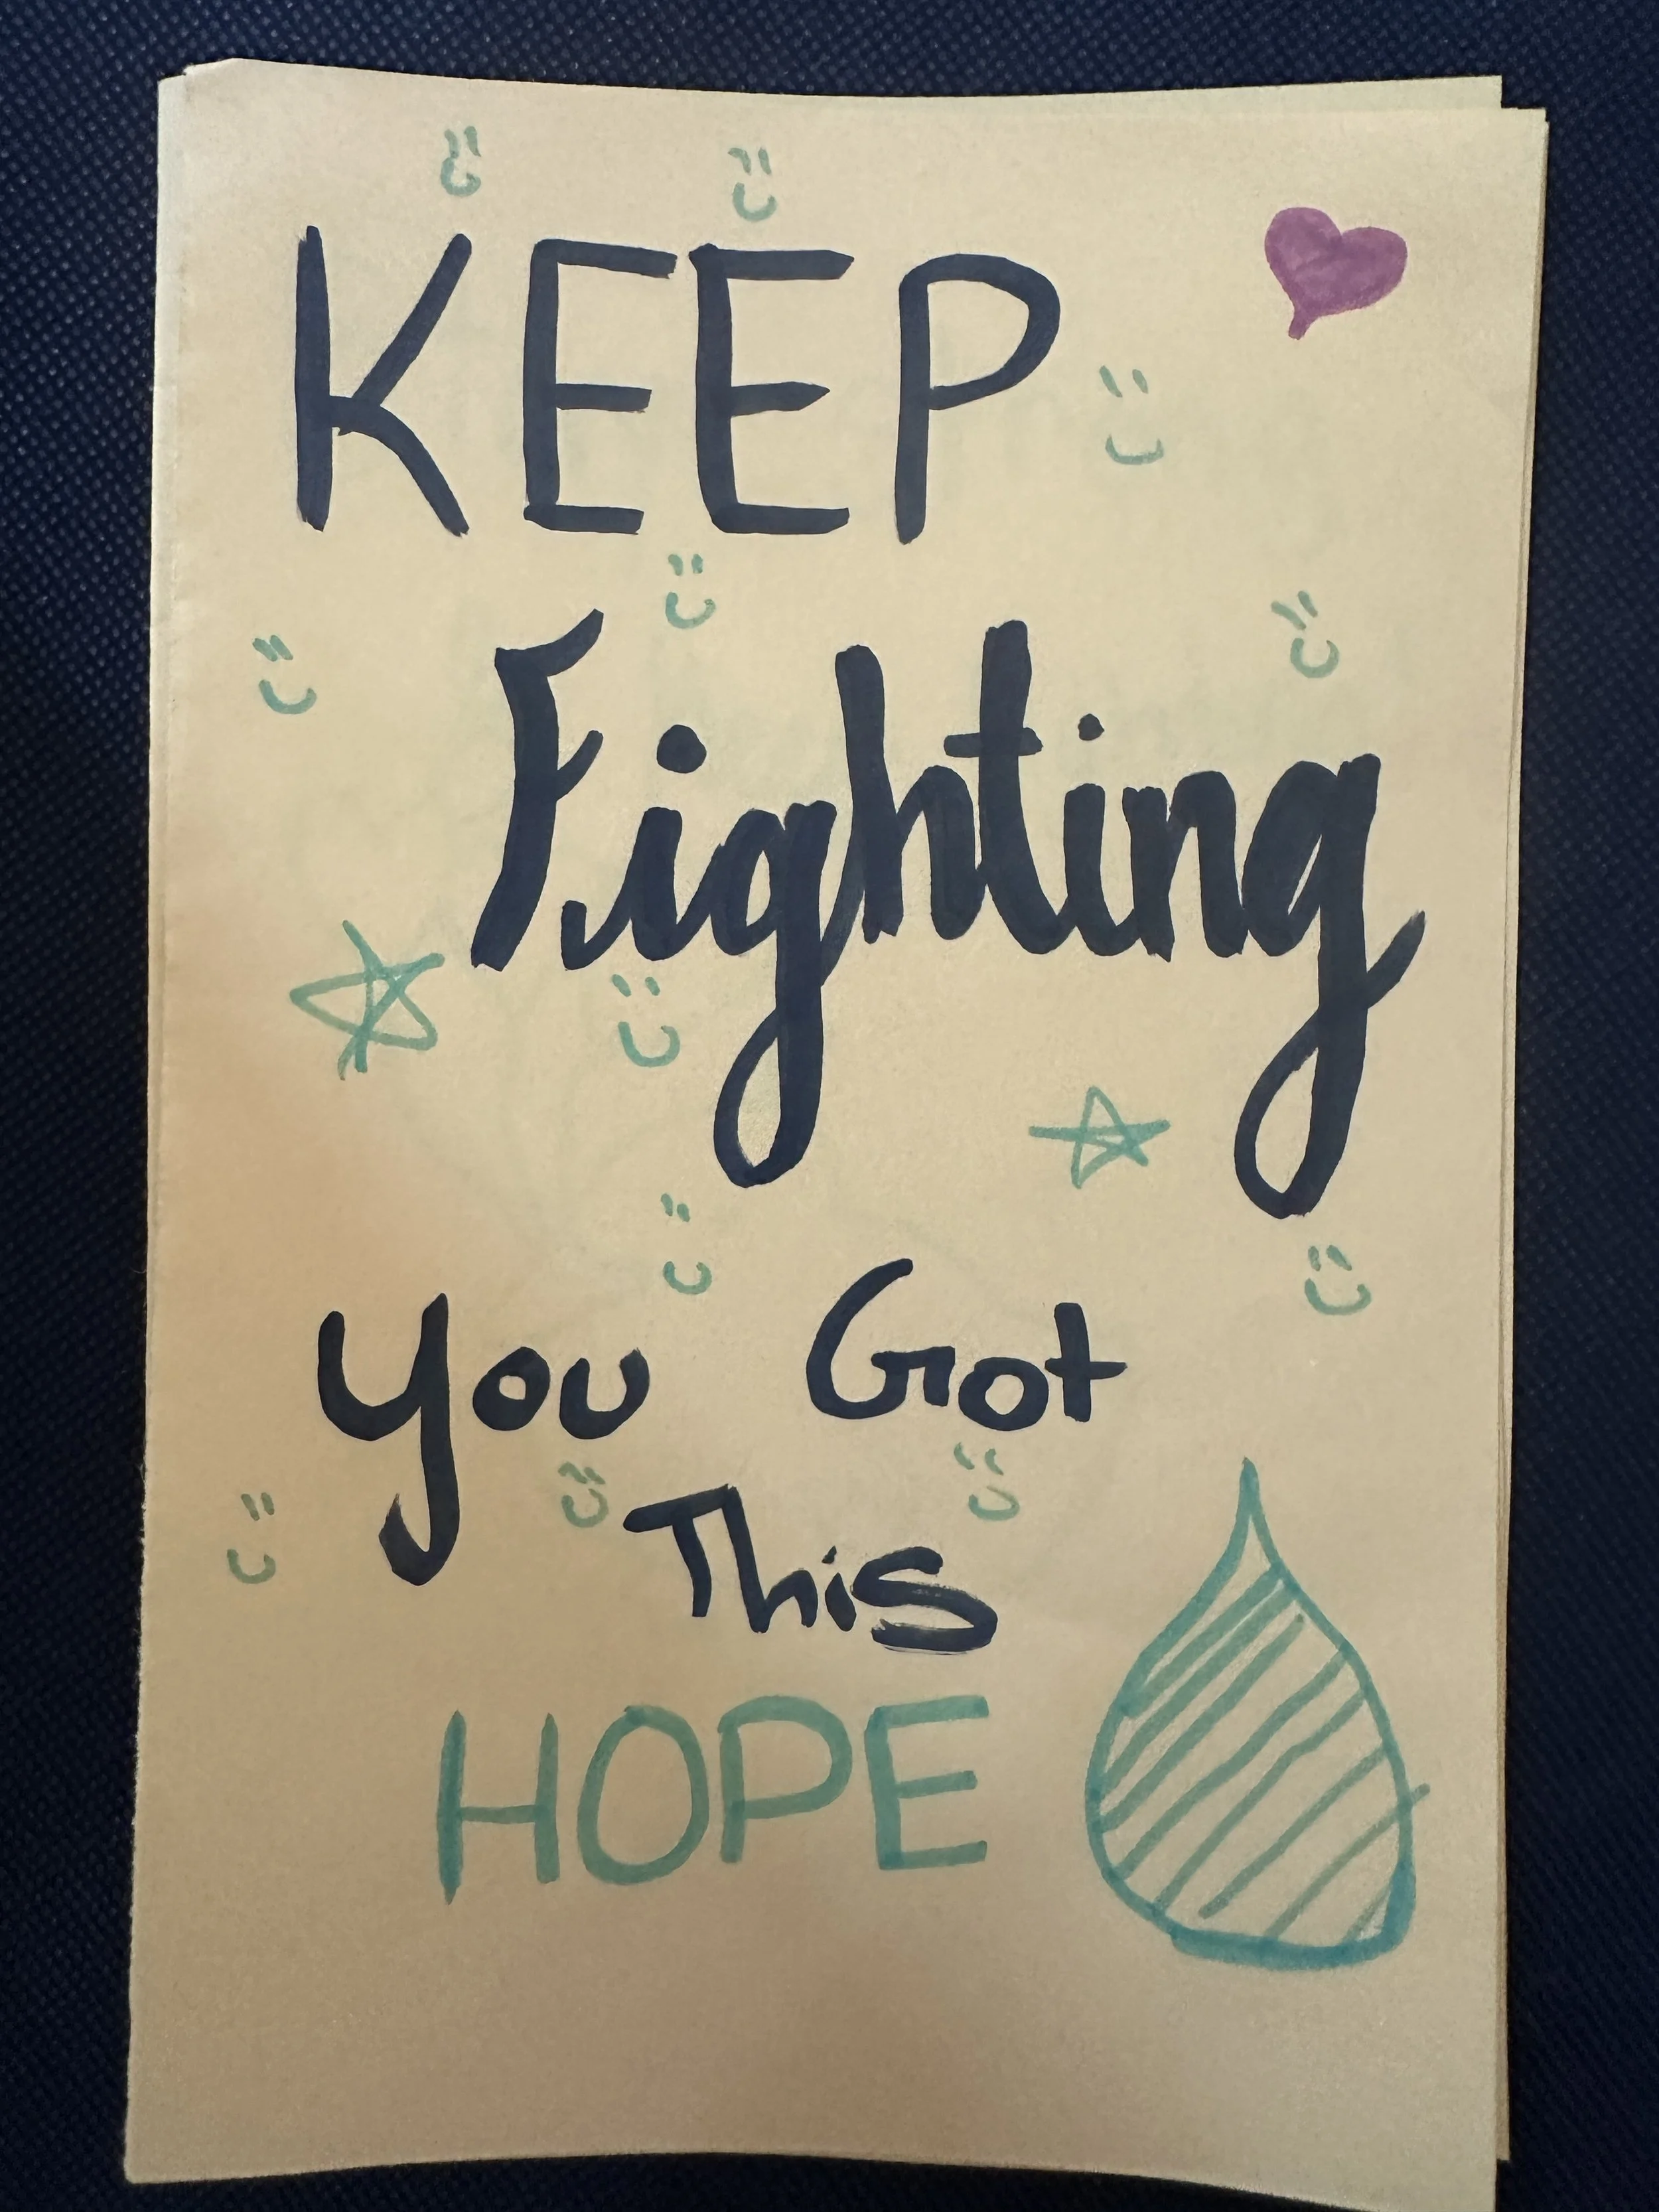 KEEP
Fighting
You Got
This
HOPE